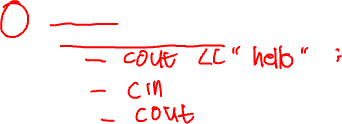 - cout << "hello" ;
- cin
- cout